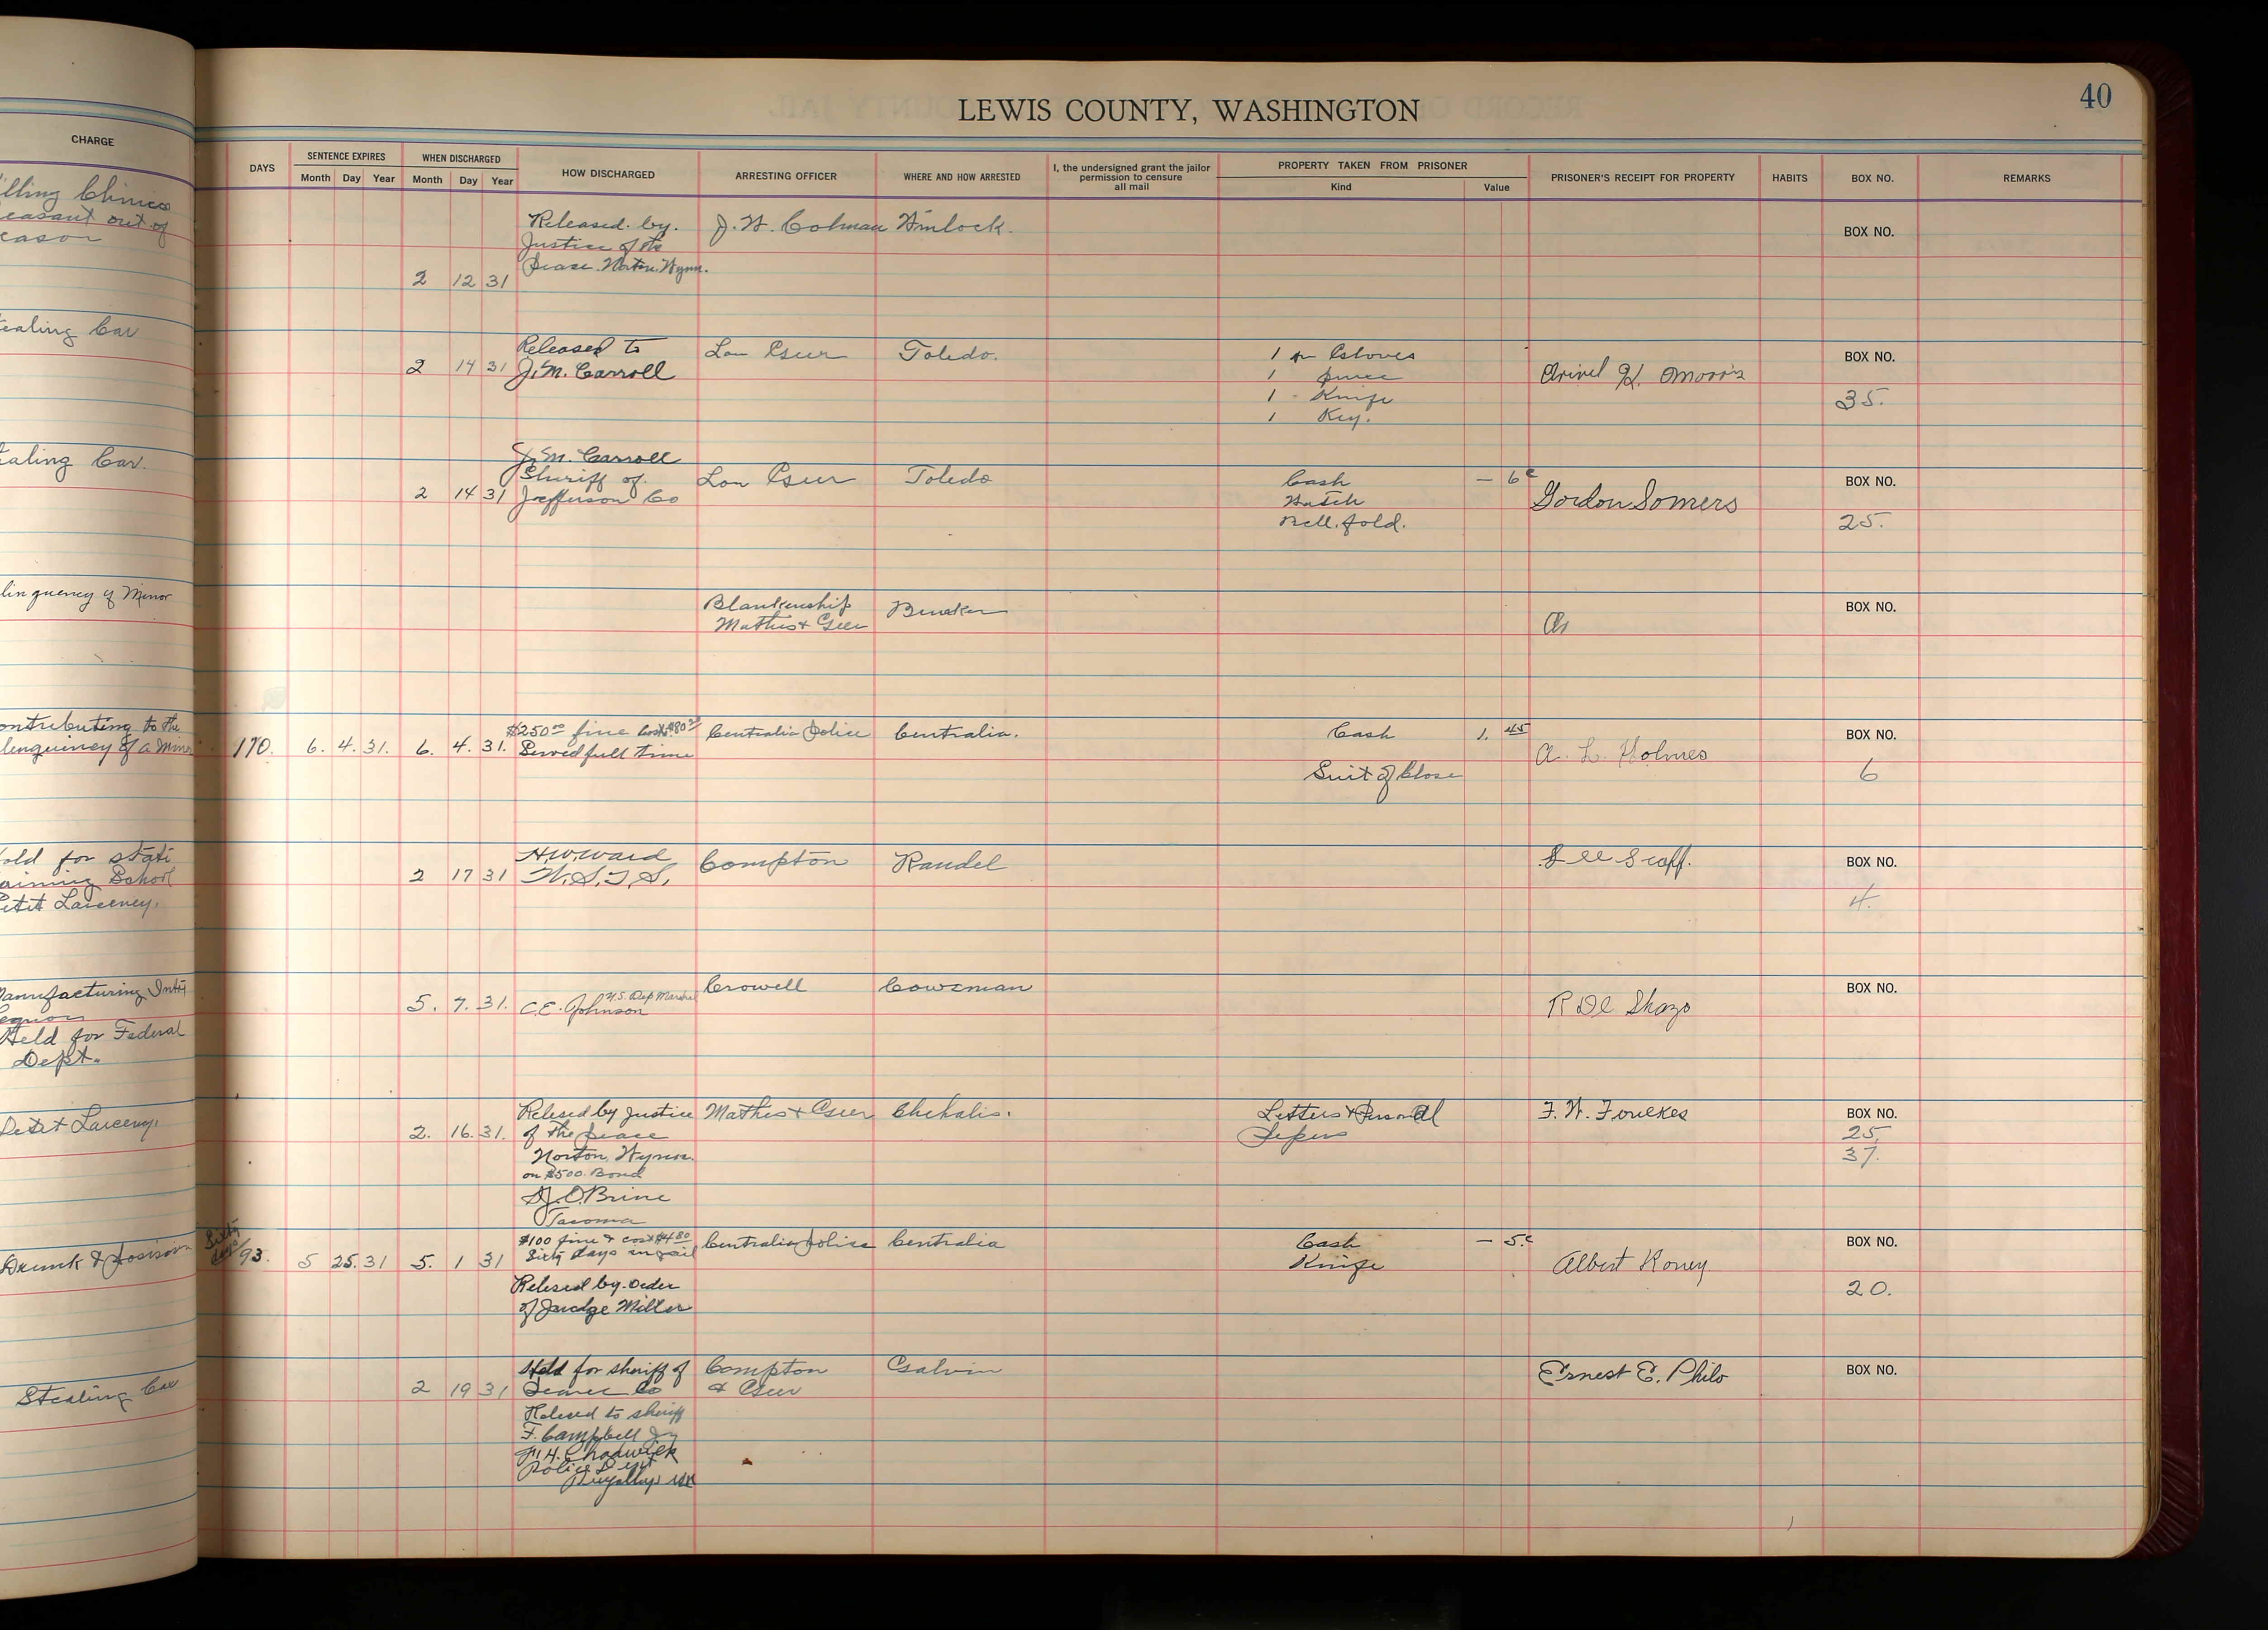 40
LEWIS COUNTY, WASHINGTON
CHARGE
DAYS
SENTENCE EXPIRES
Month Day Year
WHEN DISCHARGED
Month Day Year
HOW DISCHARGED
ARRESTING OFFICER
WHERE AND HOW ARRESTED
I, the undersigned grant the jailor
permission to censure
all mail
PROPERTY TAKEN FROM PRISONER
Kind Value
PRISONER'S RECEIPT FOR PROPERTY
HABITS
BOX NO.
REMARKS
illing Chinese
easant out of
eason
2 12 31
Released. by.
Justice of the
Peace. Norton. Wynn.
J. W. Colman
Winlock.
BOX NO.
tealing Car
2 14 31
Released to
J. M. Carroll
Lon Geer
Toledo.
1 pr Gloves
1 purce
1 - Knife
1 Key.
H. Morris
BOX NO.
35.
ealing Car.
2 14 31
J. M. Carroll
Sheriff of
Jefferson Co
Lon Geer
Toledo
Cash — 6c
Watch
Bell. fold.
Gordon Somers
BOX NO.
25.
linquency of Minor
Blankenship
Mathis + Geer
BOX NO.
ontributing to the
lenquincy of a Minor
110. 6. 4. 31. 6. 4. 31.
$250.00 fine Costs $80
Served full time
Centralia Police
Centralia.
Cash 1. 45
Suit of Close
A. L. Holmes
BOX NO.
6
old for State
aining School
etit Larceney.
2 17 31
H.W. Ward
W. S. T. S.
Compton
Randel
BOX NO.
4.
Manufacturing Intx
Held for Federal
Dept.
5. 7. 31.
C.E. Johnson U.S. Dep Marshal
Crowell
Cowsman
R De Shazo
BOX NO.
Petit Larceny.
2. 16. 31.
Relesed by Justice
of the peace
Norton. Wynn.
on $500. Bond
J. O. Brine
Tacoma
Mathis + Geer
Chehalis.
Letters & Personal
Papers
F. W. Foulkes
BOX NO.
25.
37.
Drunk &
Sixty
days
93. 5 25. 31 5. 1 31
$100 fine & cost $4.80
Sixty days in jail
Relesed by. order
of Judge Miller
Centralia Police
Centralia
Cash — 5.c
Knife
Albert Roney
BOX NO.
20.
Stealing Car
2 19 31
Held for sheriff of
Pearce Co
Relesed to sheriff
F. Campbell
F. H. Chadwick
Police Dept
Puyallup Wn
Compton
& Geer
Galvin
Ernest E. Philo
BOX NO.